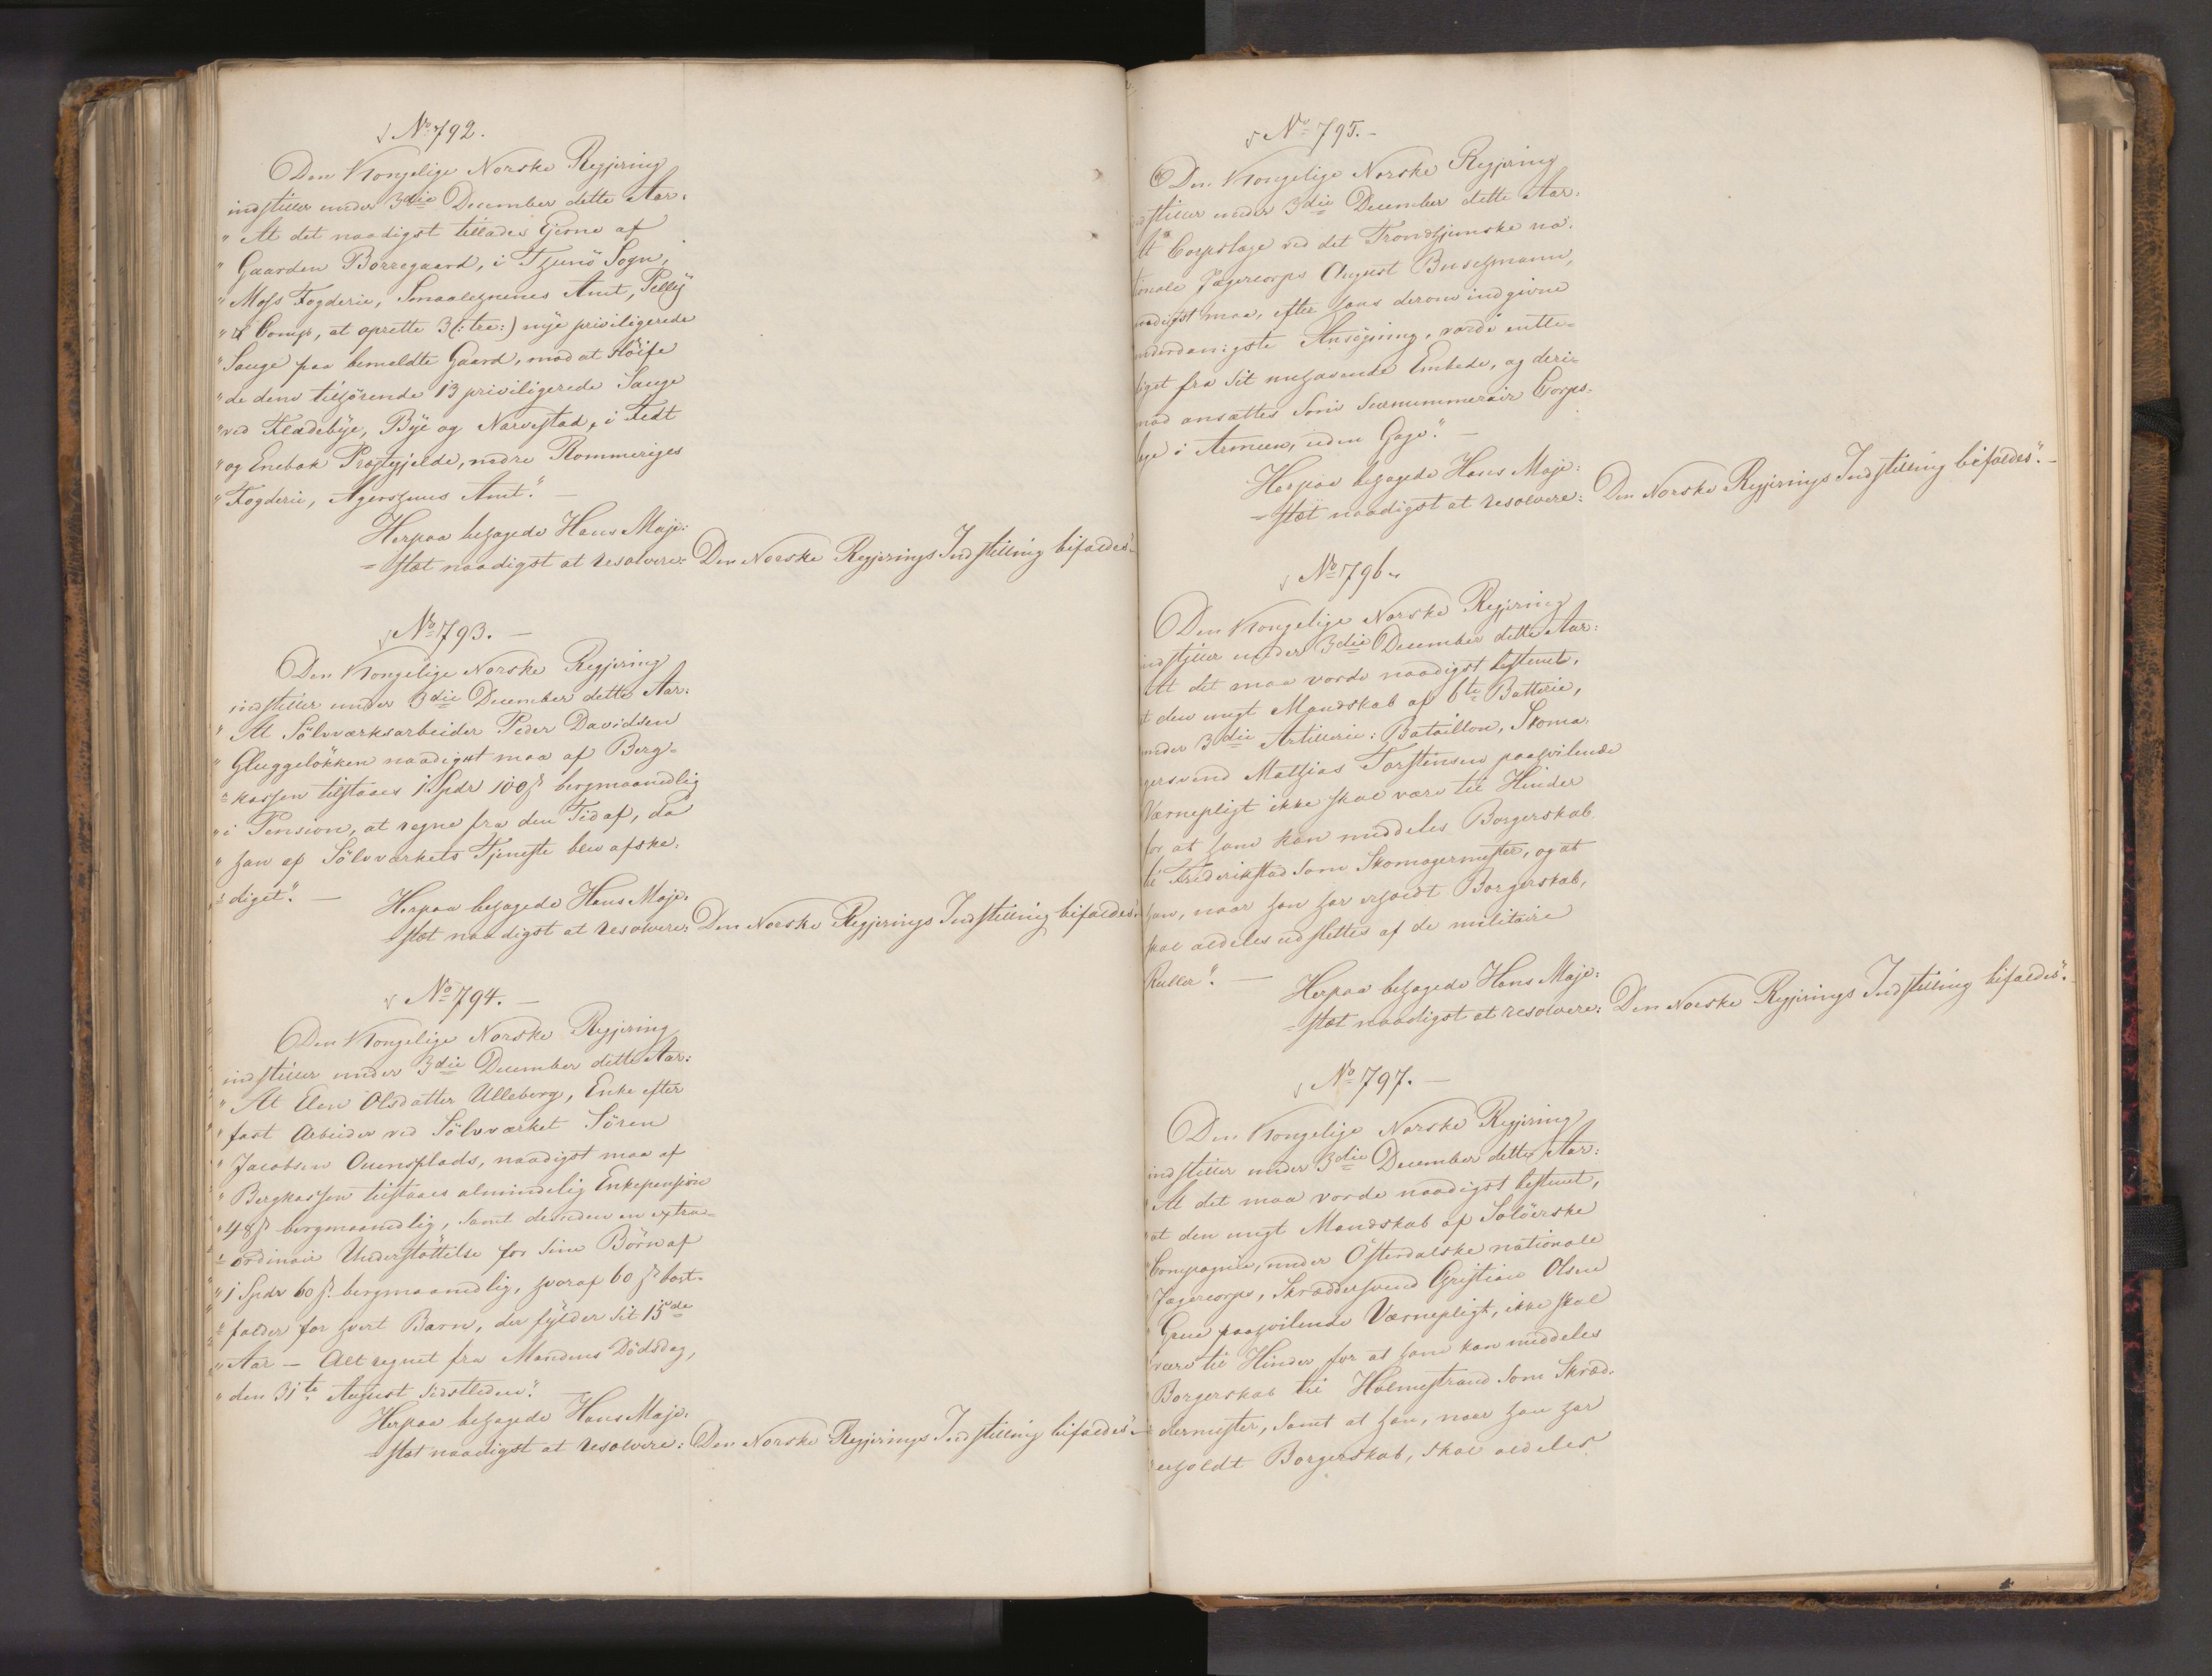 No 792.
Den Kongelige Norske Regjering
indstiller under 3die December dette Aar:
" At det naadigst tillades Eierne af
" Gaarden Borregaard, i Tunö Sogn,
" Moss Fogderie, Smaalehnenes Amt, Pelly
" & Comp, at oprette 3 (: tre :) nye priviligerede
" Sauge paa bemeldte Gaard, mod at slöife
" de dem tilhörende 13 priviligerede Sauge
" ved Fladebye, Bye og Narvestad, i Fedt
" og Enebak Præstegjelde, nedre Rommeriges
" Fogderie, Agershuus Amt." —
Herpaa behagede Hans Maje:
= stæt naadigst at resolvere: Den Norske Regjerings Indstilling bifaldes".
No 793. —
Den Kongelige Norske Regjering
indstiller under 3die December dette Aar:
" At Sölvværksarbeider Peder Davidsen
" Gluggelökken naadigst maa af Berg-
= kassen tilstaaes 1 Spdr 100 ß bergmaanedlig
" i Pension, at regne fra den Tid af, da
" han af Sölvværkets Tjeneste blev afske:
= diget". —
Herpaa behagede Hans Maje:
= stæt naadigst at resolvere: Den Norske Regjerings Indstilling bifaldes".
No 794. —
Den Kongelige Norske Regjering
indstiller under 3die December dette Aar:
" At Elen Olsdatter Ulleberg, Enke efter
" fast Arbeider ved Sölvværket Sören
" Jacobsen Ouensplads, naadigst maa af
" Bergkassen tilstaaes almindelig Enkepension
" 48 ß bergmaanedlig, samt desuden en extra-
= ordinair Understöttelse for sine Börn af
" 1 Spdr 60 ß. bergmaanedlig, hvoraf 60 ß bort-
= falder for hvert Barn, der fylder sit 15de
" Aar — Alt regnet fra Mandens Dödsdag,
" den 31te August sidstleden".
Herpaa behagede Hans Maje:
= stæt naadigst at resolvere: Den Norske Regjerings Indstilling bifaldes".
No 795. —
Den Kongelige Norske Regjering
indstiller under 3die December dette Aar:
At Corpslæge ved det Trondhjemske na:
tionale Jægercorps August Buschmann,
naadigst maa, efter hans derom indgivne
underdanigste Ansögning, vorde entle-
diget fra sit nuhavende Embede, og deri-
mod ansættes som surnummerair Corps-
læge i Armeen, uden Gage". —
Herpaa behagede Hans Maje:
= stæt naadigst at resolvere: Den Norske Regjerings Indstilling bifaldes". —
No 796.
Den Kongelige Norske Regjering
indstiller under 3die December dette Aar:
At det maa vorde naadigst bestemt,
at den ungt Mandskab af 6te Batterie,
under 3die Artillerie: Bataillon, Skoma:
gersvend Mathias Torstensen paahvilende
Værnepligt ikke skal være til Hinder
for at ham kan meddeles Borgerskab
til Frederikstad som Skomagermester, og at
han, naar han har erholdt Borgerskab,
skal aldeles udslettes af de militaire
Ruller". —
Herpaa behagede Hans Maje:
= stæt naadigst at resolvere: Den Norske Regjerings Indstilling bifaldes". —
No 797. —
Den Kongelige Norske Regjering
indstiller under 3die December dette Aar:
" At det maa vorde naadigst bestemt,
" at den ungt Mandskab af Solöerske
" Compagnie, under Österdalske nationale
" Jægercorps, Skræddersvend Christian Olsen
" Grue paahvilende Værnepligt, ikke skal
" være til Hinder for at ham kan meddeles
" Borgerskab til Holmestrand som Skræd:
= dermester, samt at han, naar han har
" erholdt Borgerskab, skal aldeles